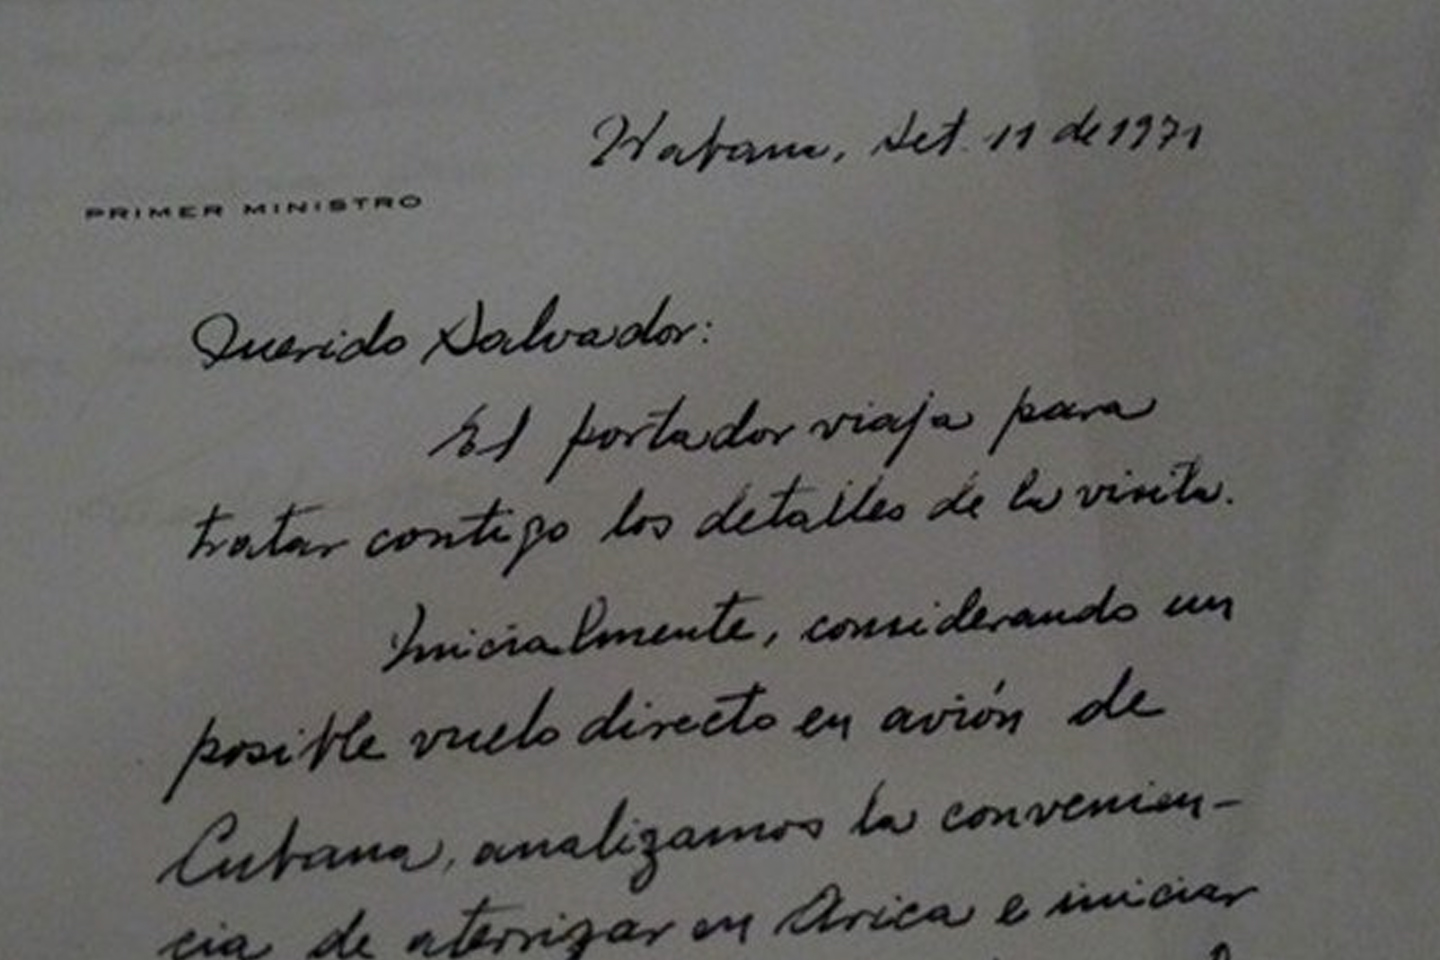 Habana, Set. 11 de 1971
PRIMER MINISTRO
Querido Salvador:
El portador viaja para
tratar contigo los detalles de la visita.
Inicialmente, considerando un
posible vuelo directo en avión de
Cubana, analizamos la convenien-
cia de aterrizar en Arica e iniciar